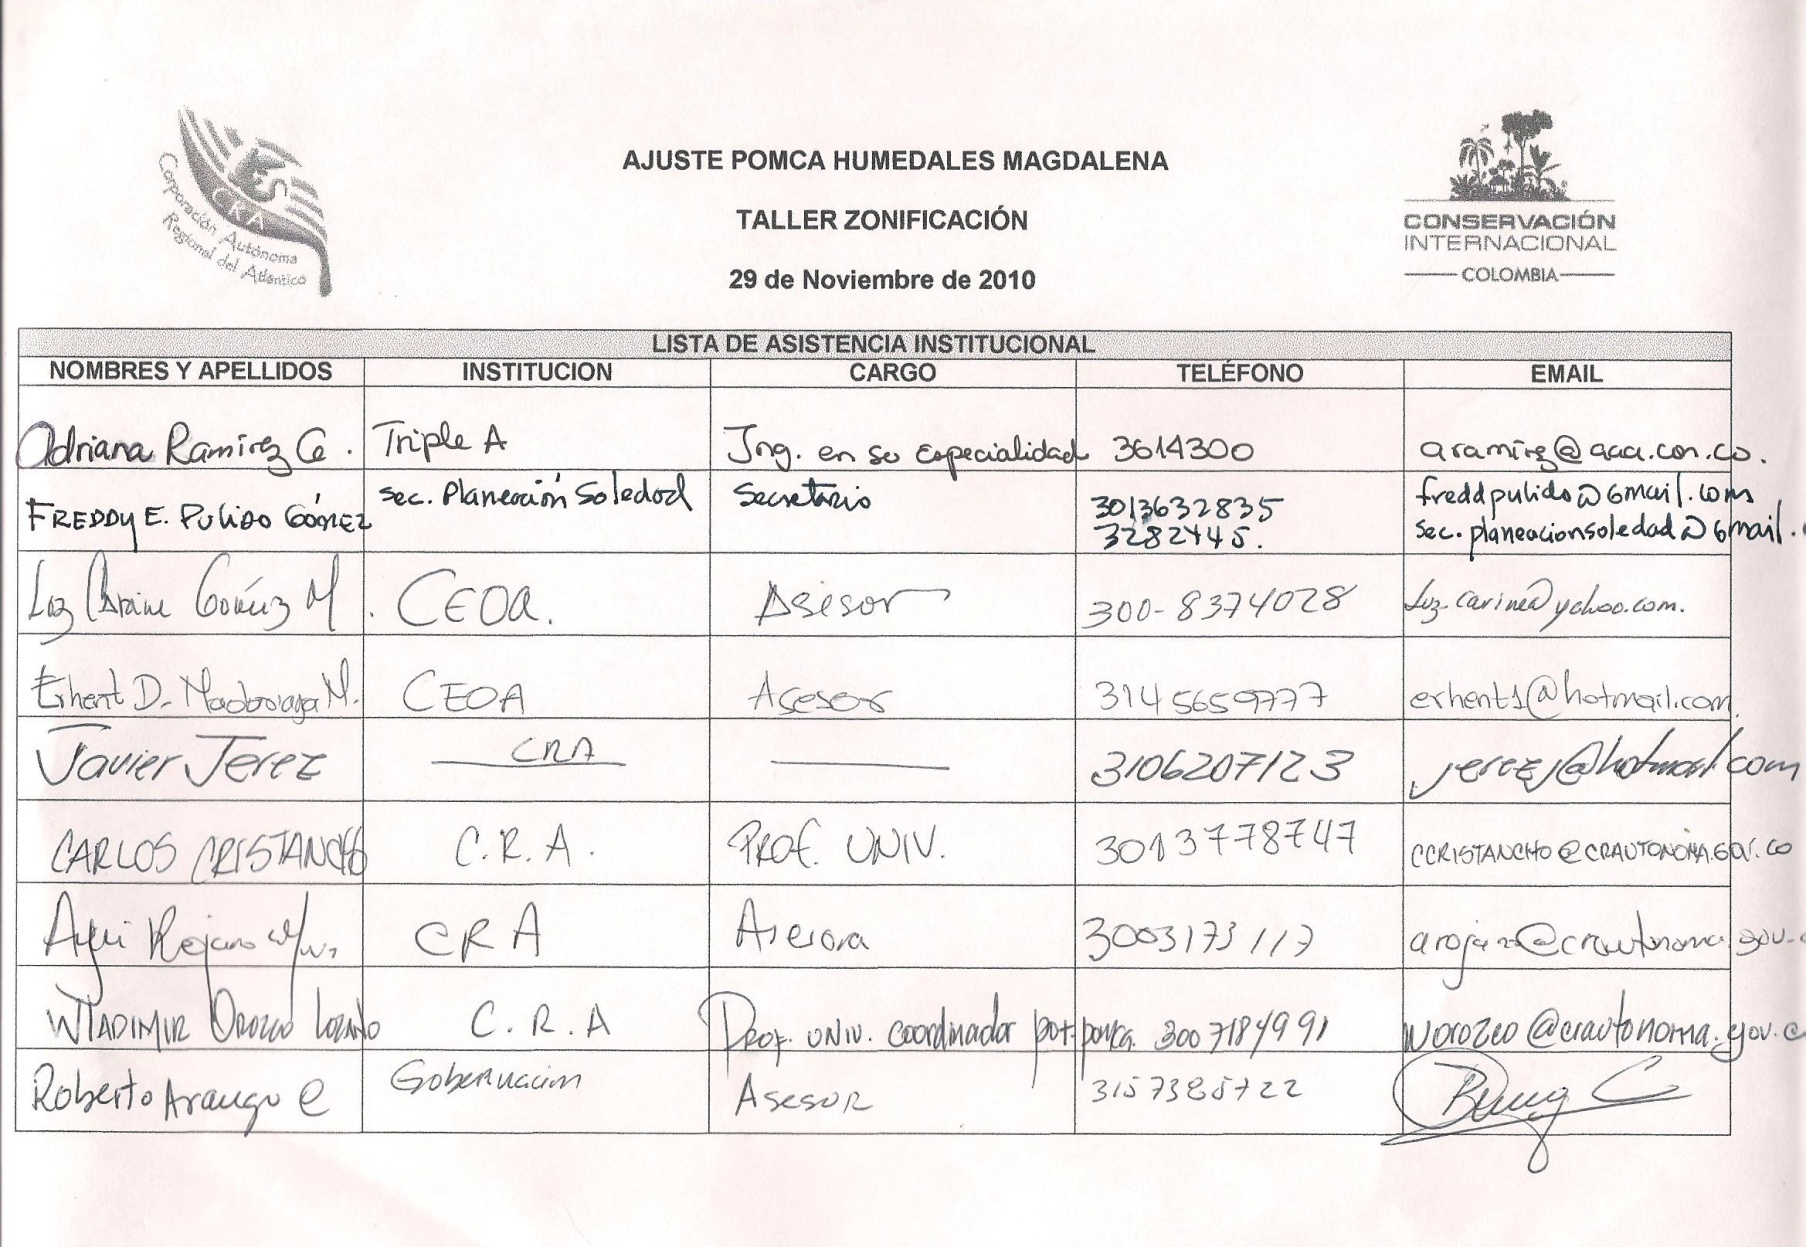 CRA
Corporación Autónoma
Regional del Atlántico
AJUSTE POMCA HUMEDALES MAGDALENA
TALLER ZONIFICACIÓN
29 de Noviembre de 2010
CONSERVACIÓN
INTERNACIONAL
COLOMBIA
LISTA DE ASISTENCIA INSTITUCIONAL
NOMBRES Y APELLIDOS INSTITUCION CARGO TELÉFONO EMAIL
Adriana Ramírez C. Triple A Ing. en su Especialidad 3614300 aramirez@aaa.com.co.
FREDDY E. PULIDO GÓMEZ sec. Planeación Soledad Secretario 3013632835 freddpulido@gmail.com
3282445. sec.planeacionsoledad@gmail.
Luz Carine Gómez M. CEOA. Asesor 300-8374028 luz-carine@yahoo.com.
Erhent D. M. CEOA Asesor 3145659777 erhent1@hotmail.com.
Javier Jerez CRA 3106207123 jerezj@hotmail.com
CARLOS CRISTANCHO C.R.A. PROF. UNIV. 3013778747 CCRISTANCHO@CRAUTONOMA.GOV.CO
Rojano CRA Asesora 3003173117 arojano@crautonoma.gov.
WLADIMIR OROZCO LOZANO C.R.A Prof. UNIV. coordinador pot-pomca. 3007184991 worozco@crautonoma.gov.c
Roberto Araugo C Gobernación ASESOR 3157385722